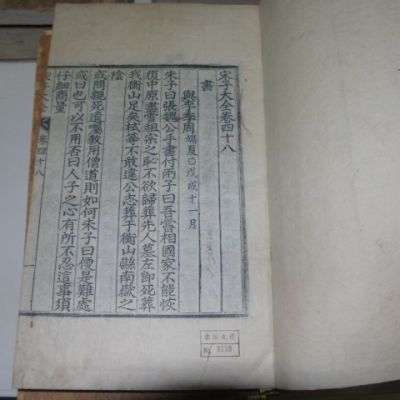 宋子大全卷四十八
書
與李季周 端夏○戊戌十一月
朱子曰張魏公手書付兩子曰吾嘗相國家不能恢
復中原盡雪祖宗之恥不欲歸葬先人墓左卽死葬
我衡山足矣栻等不敢違公志葬于衡山縣南嶽之
陰
或問親死遺囑敎用僧道則如何朱子曰便是難處
或曰也可以不用否曰人子之心有所不忍這事須
仔細商量
宋子大全 卷四十八